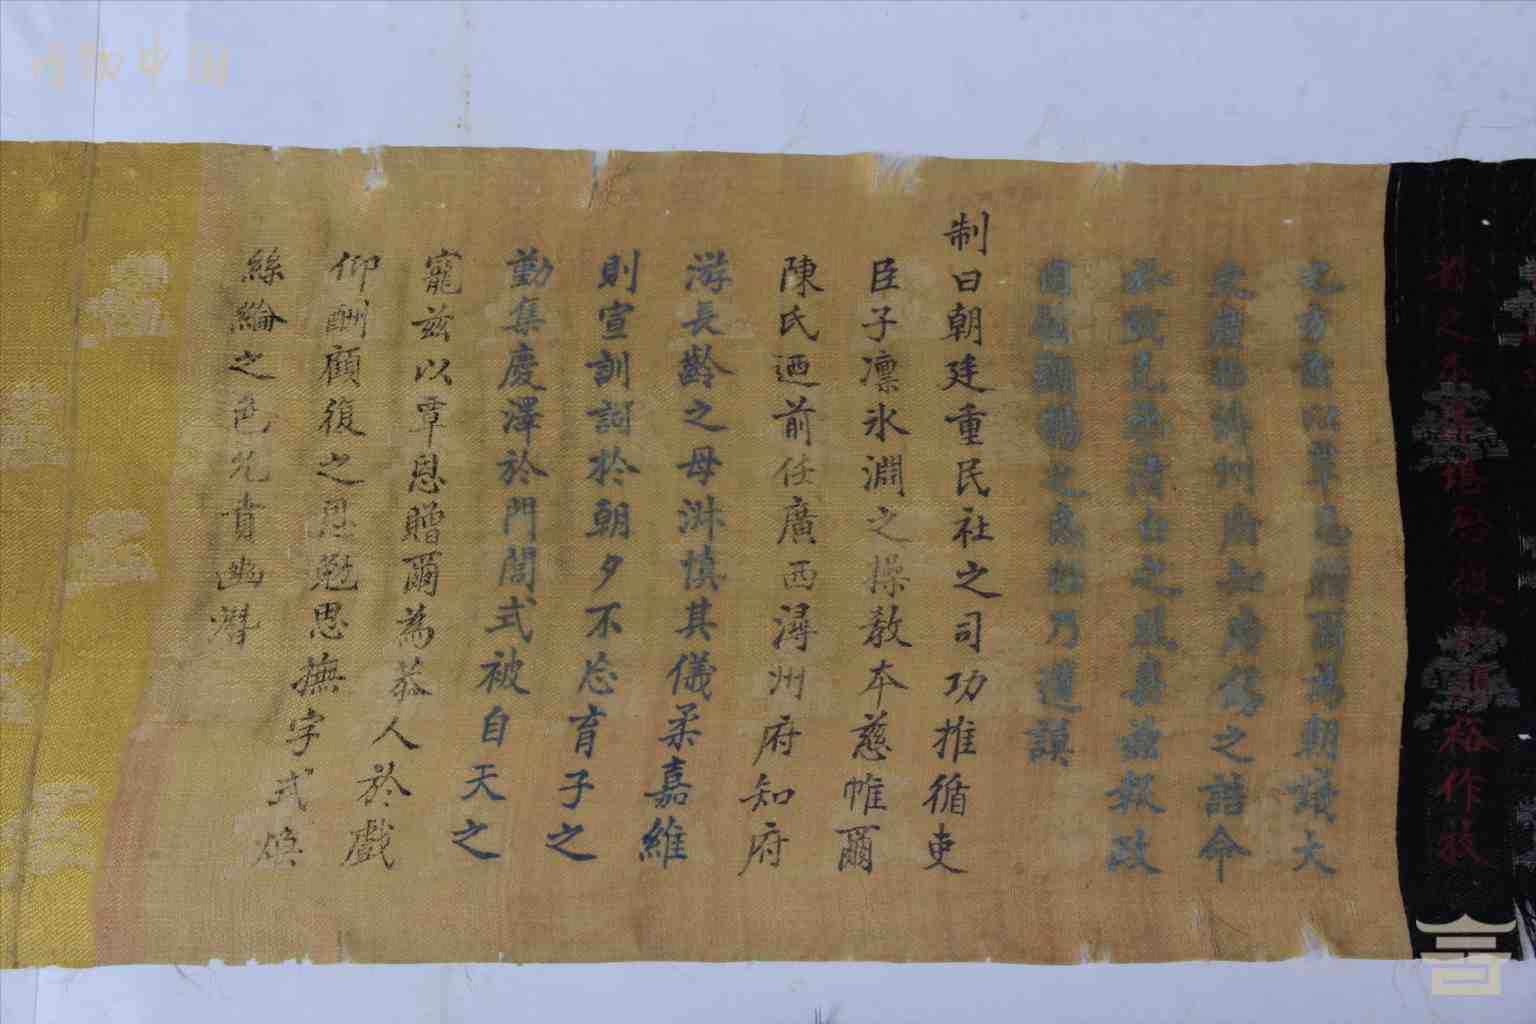 裕作牧
之方茲以覃恩贈爾為朝議大
夫廣西潯州府知府錫之誥命
於戲克承清白之風嘉茲報政
用慰顯揚之志畀乃遺謨
制曰朝廷重民社之司功推循吏
臣子凜氷淵之操教本慈帷爾
陳氏迺前任廣西潯州府知府
游長齡之母淑慎其儀柔嘉維
則宣訓詞於朝夕不忘育子之
勤集慶澤於門閭式被自天之
寵茲以覃恩贈爾為恭人於戲
仰酬顧復之恩勉思撫字式煥
絲綸之色允賁幽潛
博物中国